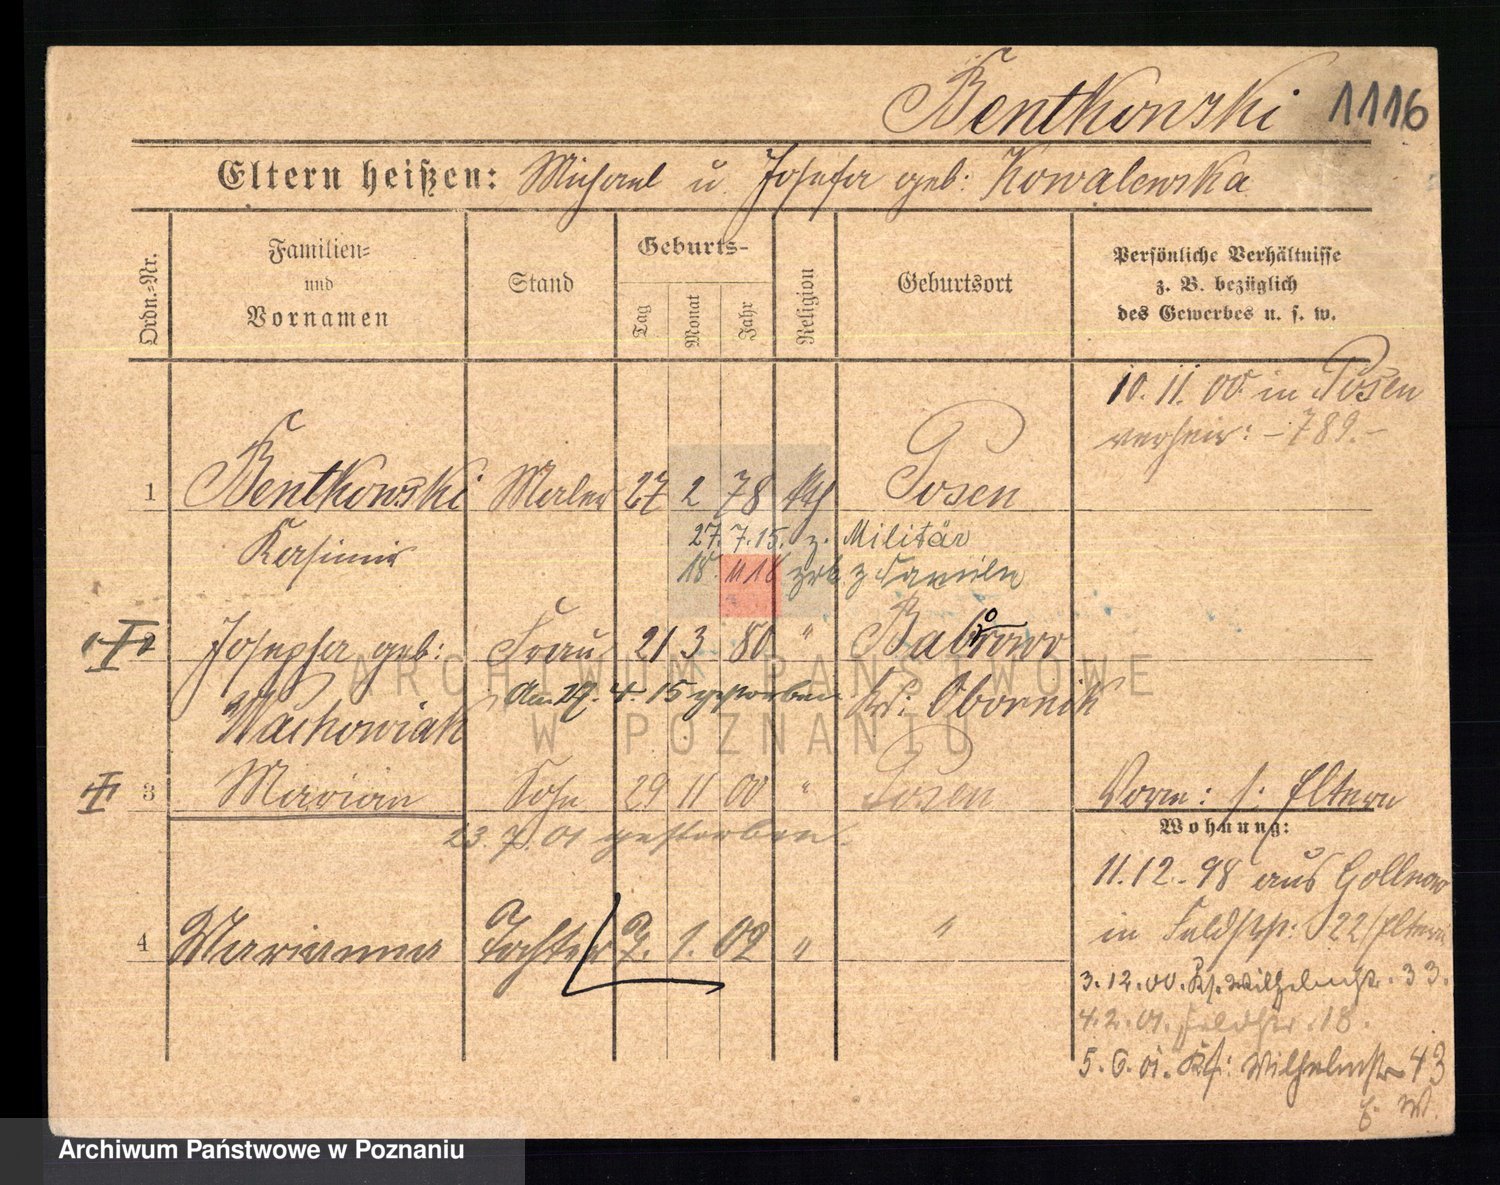 Bentkowski 1116
Eltern heißen: Michael u. Josefa geb: Kowalewska
Ordn.-Nr.
Familien- und Vornamen
Stand
Geburts-
Tag
Monat
Jahr
Religion
Geburtsort
Persönliche Verhältnisse
z. B. bezüglich
des Gewerbes u. s. w.
10. 11. 00 in Posen
verheir: - 789. -
1 Bentkowski Maler 27 2 78 kth Posen
Kasimir
27. 7. 15. z. Militär
18. 11 18 zrk z Familie
2 Josepha geb: Frau 21 3 80 " Babrowo
Am 27. 4. 15 gestorben Kr: Obornik
Wachowiak
3 Marian Sohn 29 11 00 " Posen
23. 7. 01 gestorben.
Vorm: s: Eltern
Wohnung:
11. 12. 98 aus Gollnow
in Feldstr: 22/Eltern
4 Marianna Tochter 7. 1. 02 " "
3. 12. 00. Ks. Wilhelmstr. 33.
4. 2. 01. Feldstr. 18.
5. 6. 01. Ks: Wilhelmstr 43
E. W.
ARCHIWUM PAŃSTWOWE
W POZNANIU
Archiwum Państwowe w Poznaniu